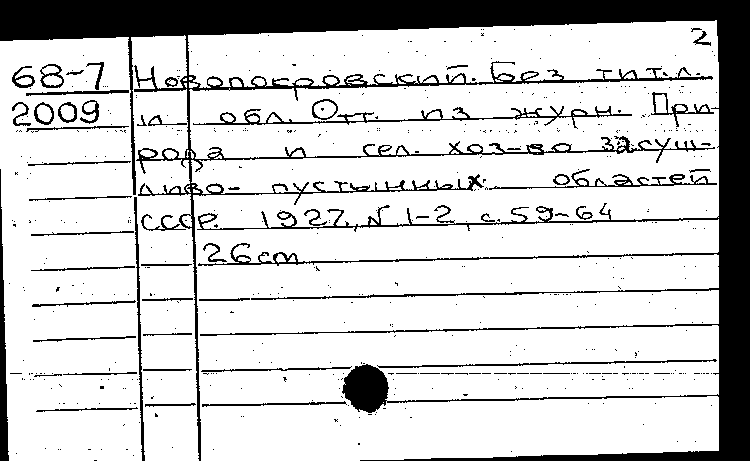 2
68-7 Новопокровский. Без тит.л.
2009 и обл. Отт. из журн. При-
рода и сел. хоз-во засуш-
ливо- пустынных областей
СССР. 1927, № 1-2, с. 59-64
26 cm